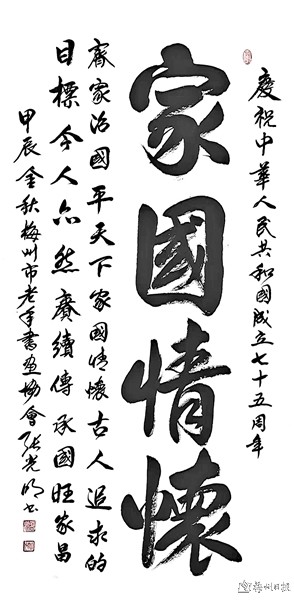 慶祝中華人民共和國成立七十五周年
家國情懷
齊家治國平天下家國情懷古人追求的
目標今人亦然賡續傳承國旺家昌
甲辰金秋梅州市老年書畫協會張光明书
梅州日报